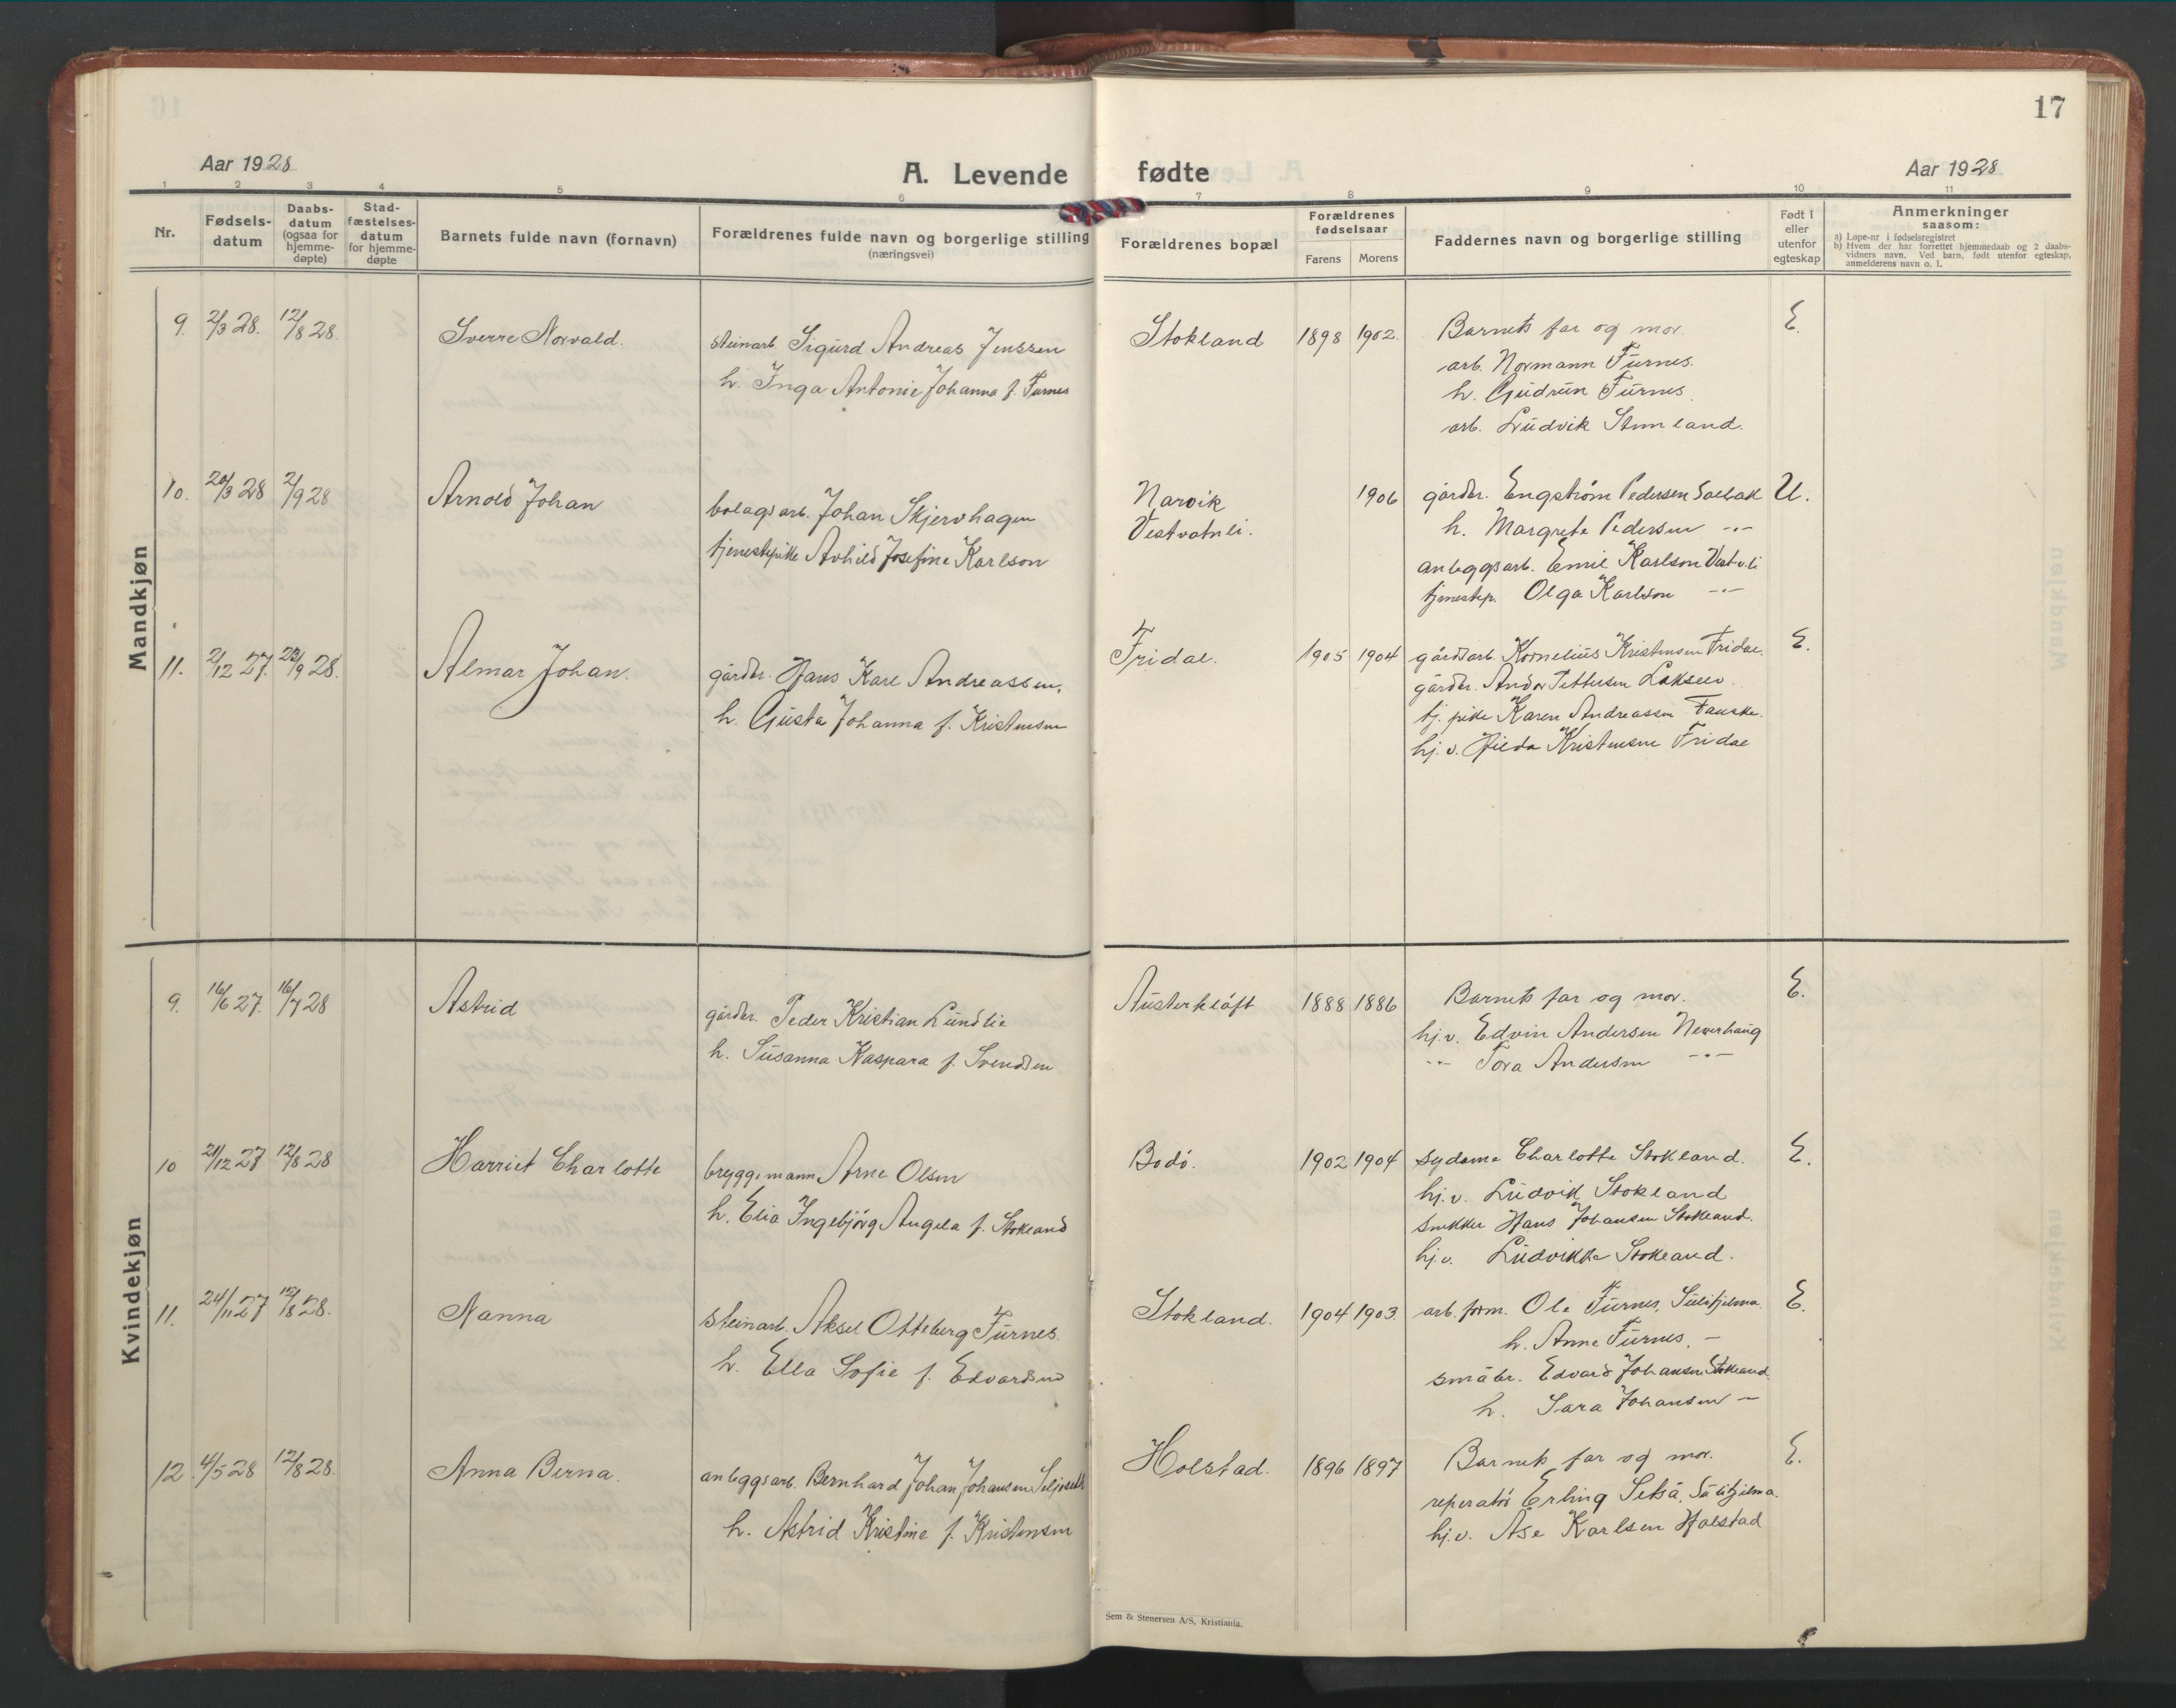 17
Aar 1928
A. Levende fødte
Aar 1928
1 2 3 4 5 6 7 8 9 10 11
Nr.
Fødsels-datum
Daabs-datum (ogsaa for hjemme-døpte)
Stad-fæstelses-datum for hjemme-døpte
Barnets fulde navn (fornavn)
Forældrenes fulde navn og borgerlige stilling (næringsvei)
Forældrenes bopæl
Forældrenes fødselsaar
Farens Morens
Faddernes navn og borgerlige stilling
Født i eller utenfor egteskap
Anmerkninger saasom:
a) Løpe-nr i fødselsregistret
b) Hvem der har forrettet hjemmedaab og 2 daabs-
vidners navn. Ved barn, født utenfor egteskap,
anmelderens navn o. l.
Mandkjøn
9. 2/3 28. 12/8 28. Sverre Norvald. steinarb. Sigurd Andreas Jenssen Stokland 1898 1902. Barnets far og mor. E.
h. Inga Antonie Johanna f. Furnes arb. Normann Furnes.
h. Gudrun Furnes.
arb. Ludvik
10. 20/3 28 2/9 28 Arnold Johan bolagsarb. Johan Skjervhagen Narvik 1906 gårdbr. Engstrøm Pedersen U.
tjenestepike Arhild Josefine Karlson Vestvatnli. h. Margrete Pedersen -"-
anleggsarb. Emil Karlson Vestv.li
tjenestep. Olga Karlson -"-
11. 2/12 27. 23/9 28. Almar Johan. gårdbr. Hans Karl Andreassen, Fridal. 1905 1904 gårdsarb. Kornelius Kristensen Fridal. E.
h. Gusta Johanna f. Kristensen gårdbr. Andor Pettersen
tj. pike Karen Andreassen Fauske.
hj. v. Hilda Kristensen Fridal
Kvindekjøn
9. 16/6 27. 16/7 28 Astrid gårdbr. Peder Kristian Lundlie Austerkløft 1888 1886 Barnets far og mor. E.
h. Susanna Kaspara f. Svendsen hj. v. Edvin Andersen Neverhaug
-"- Tora Andersen -"-
10 21/12 27 12/8 28 Harriet Charlotte bryggemann Arne Olsen Bodø. 1902 1904 sydame Charlotte Stokland. E.
h. Elia Ingebjørg Angela f. Stokland hj. v. Ludvik Stokland
snekker Hans Johansen Stokland.
hj. v. Ludvikke Stokland.
11. 24/11 27 12/8 28. Nanna steinarb. Aksel Otteberg Furnes. Stokland. 1904 1903. arb. form. Ole Furnes, Sulitjelma. E.
h. Ella Sofie f. Edvardsen h. Anne Furnes. -
småbr. Edvard Johansen Stokland.
h. Sara Johansen -
12. 4/5 28 12/8 28. Anna Berna. anleggsarb. Bernhard Johan Johansen Holstad. 1896 1897 Barnets far og mor. E.
h. Astrid Kristine f. Kristensen reperatør Erling Setså, Sulitjelma.
hj. v. Åse Karlsen Holstad
Sem & Stenersen A/S, Kristiania.